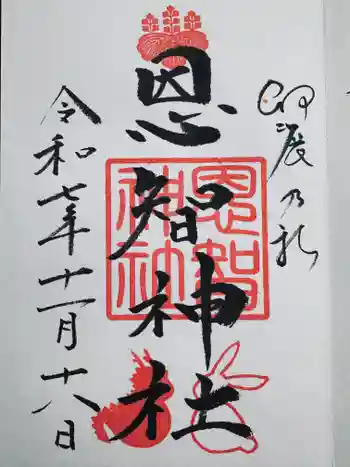 卯辰乃礼
恩智神社
恩智神社
令和七年十一月十八日